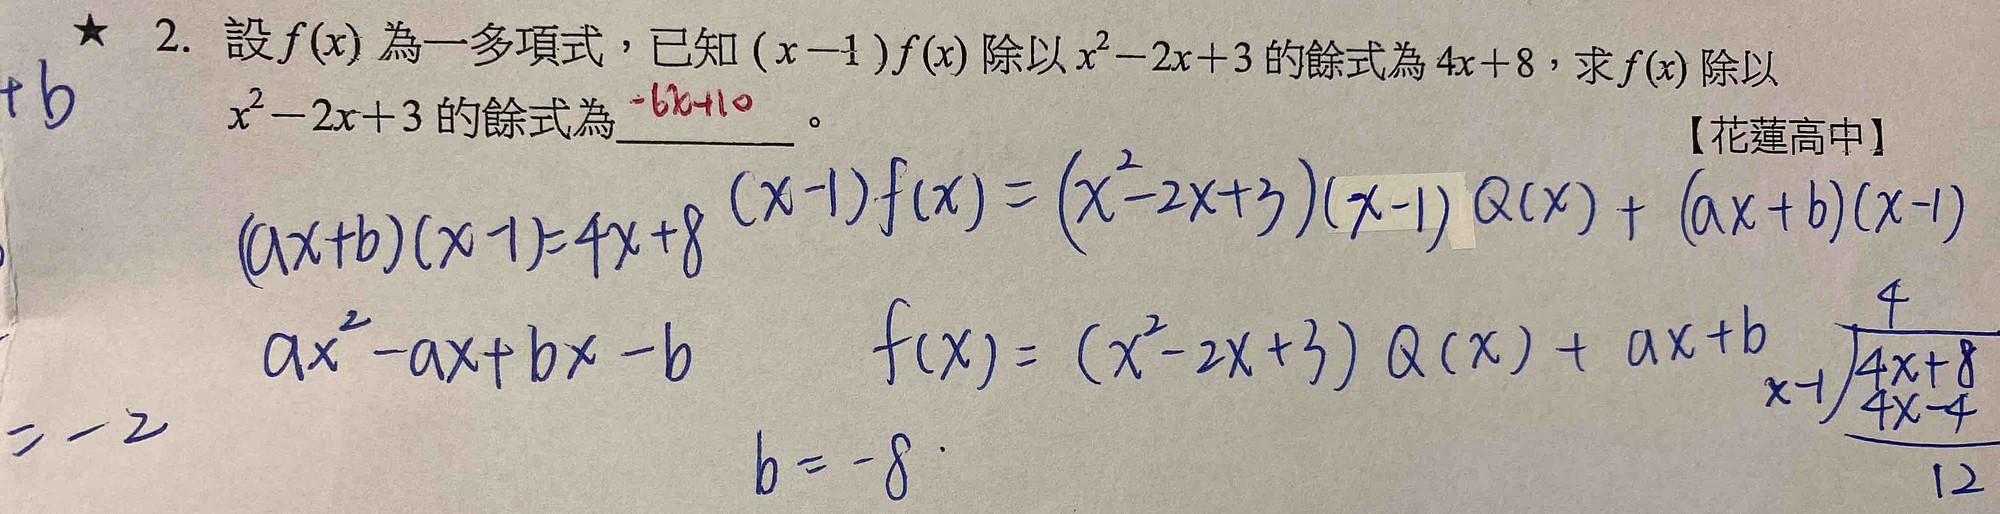 ★ 2. 設 f(x) 為一多項式，已知 (x－1)f(x) 除以 x²－2x＋3 的餘式為 4x＋8，求 f(x) 除以
+b
x²－2x＋3 的餘式為 -6x+10 。
【花蓮高中】
(x-1)f(x) = (x²-2x+3)(x-1) Q(x) + (ax+b)(x-1)
(ax+b)(x-1)=4x+8
ax²-ax+bx-b
f(x) = (x²-2x+3) Q(x) + ax+b
4
x-1 4x+8
4x-4
12
= -2
b = -8